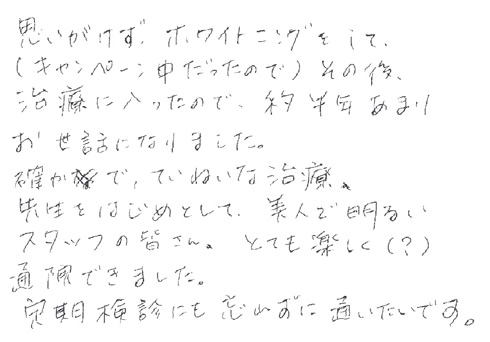 思いがけず、ホワイトニングをして、
(キャンペーン中だったので)その後、
治療に入ったので、約半年あまり
お世話になりました。
確かで、ていねいな治療、
先生をはじめとして、美人で明るい
スタッフの皆さん。とても楽しく(?)
通院できました。
定期検診にも忘れずに通いたいです。